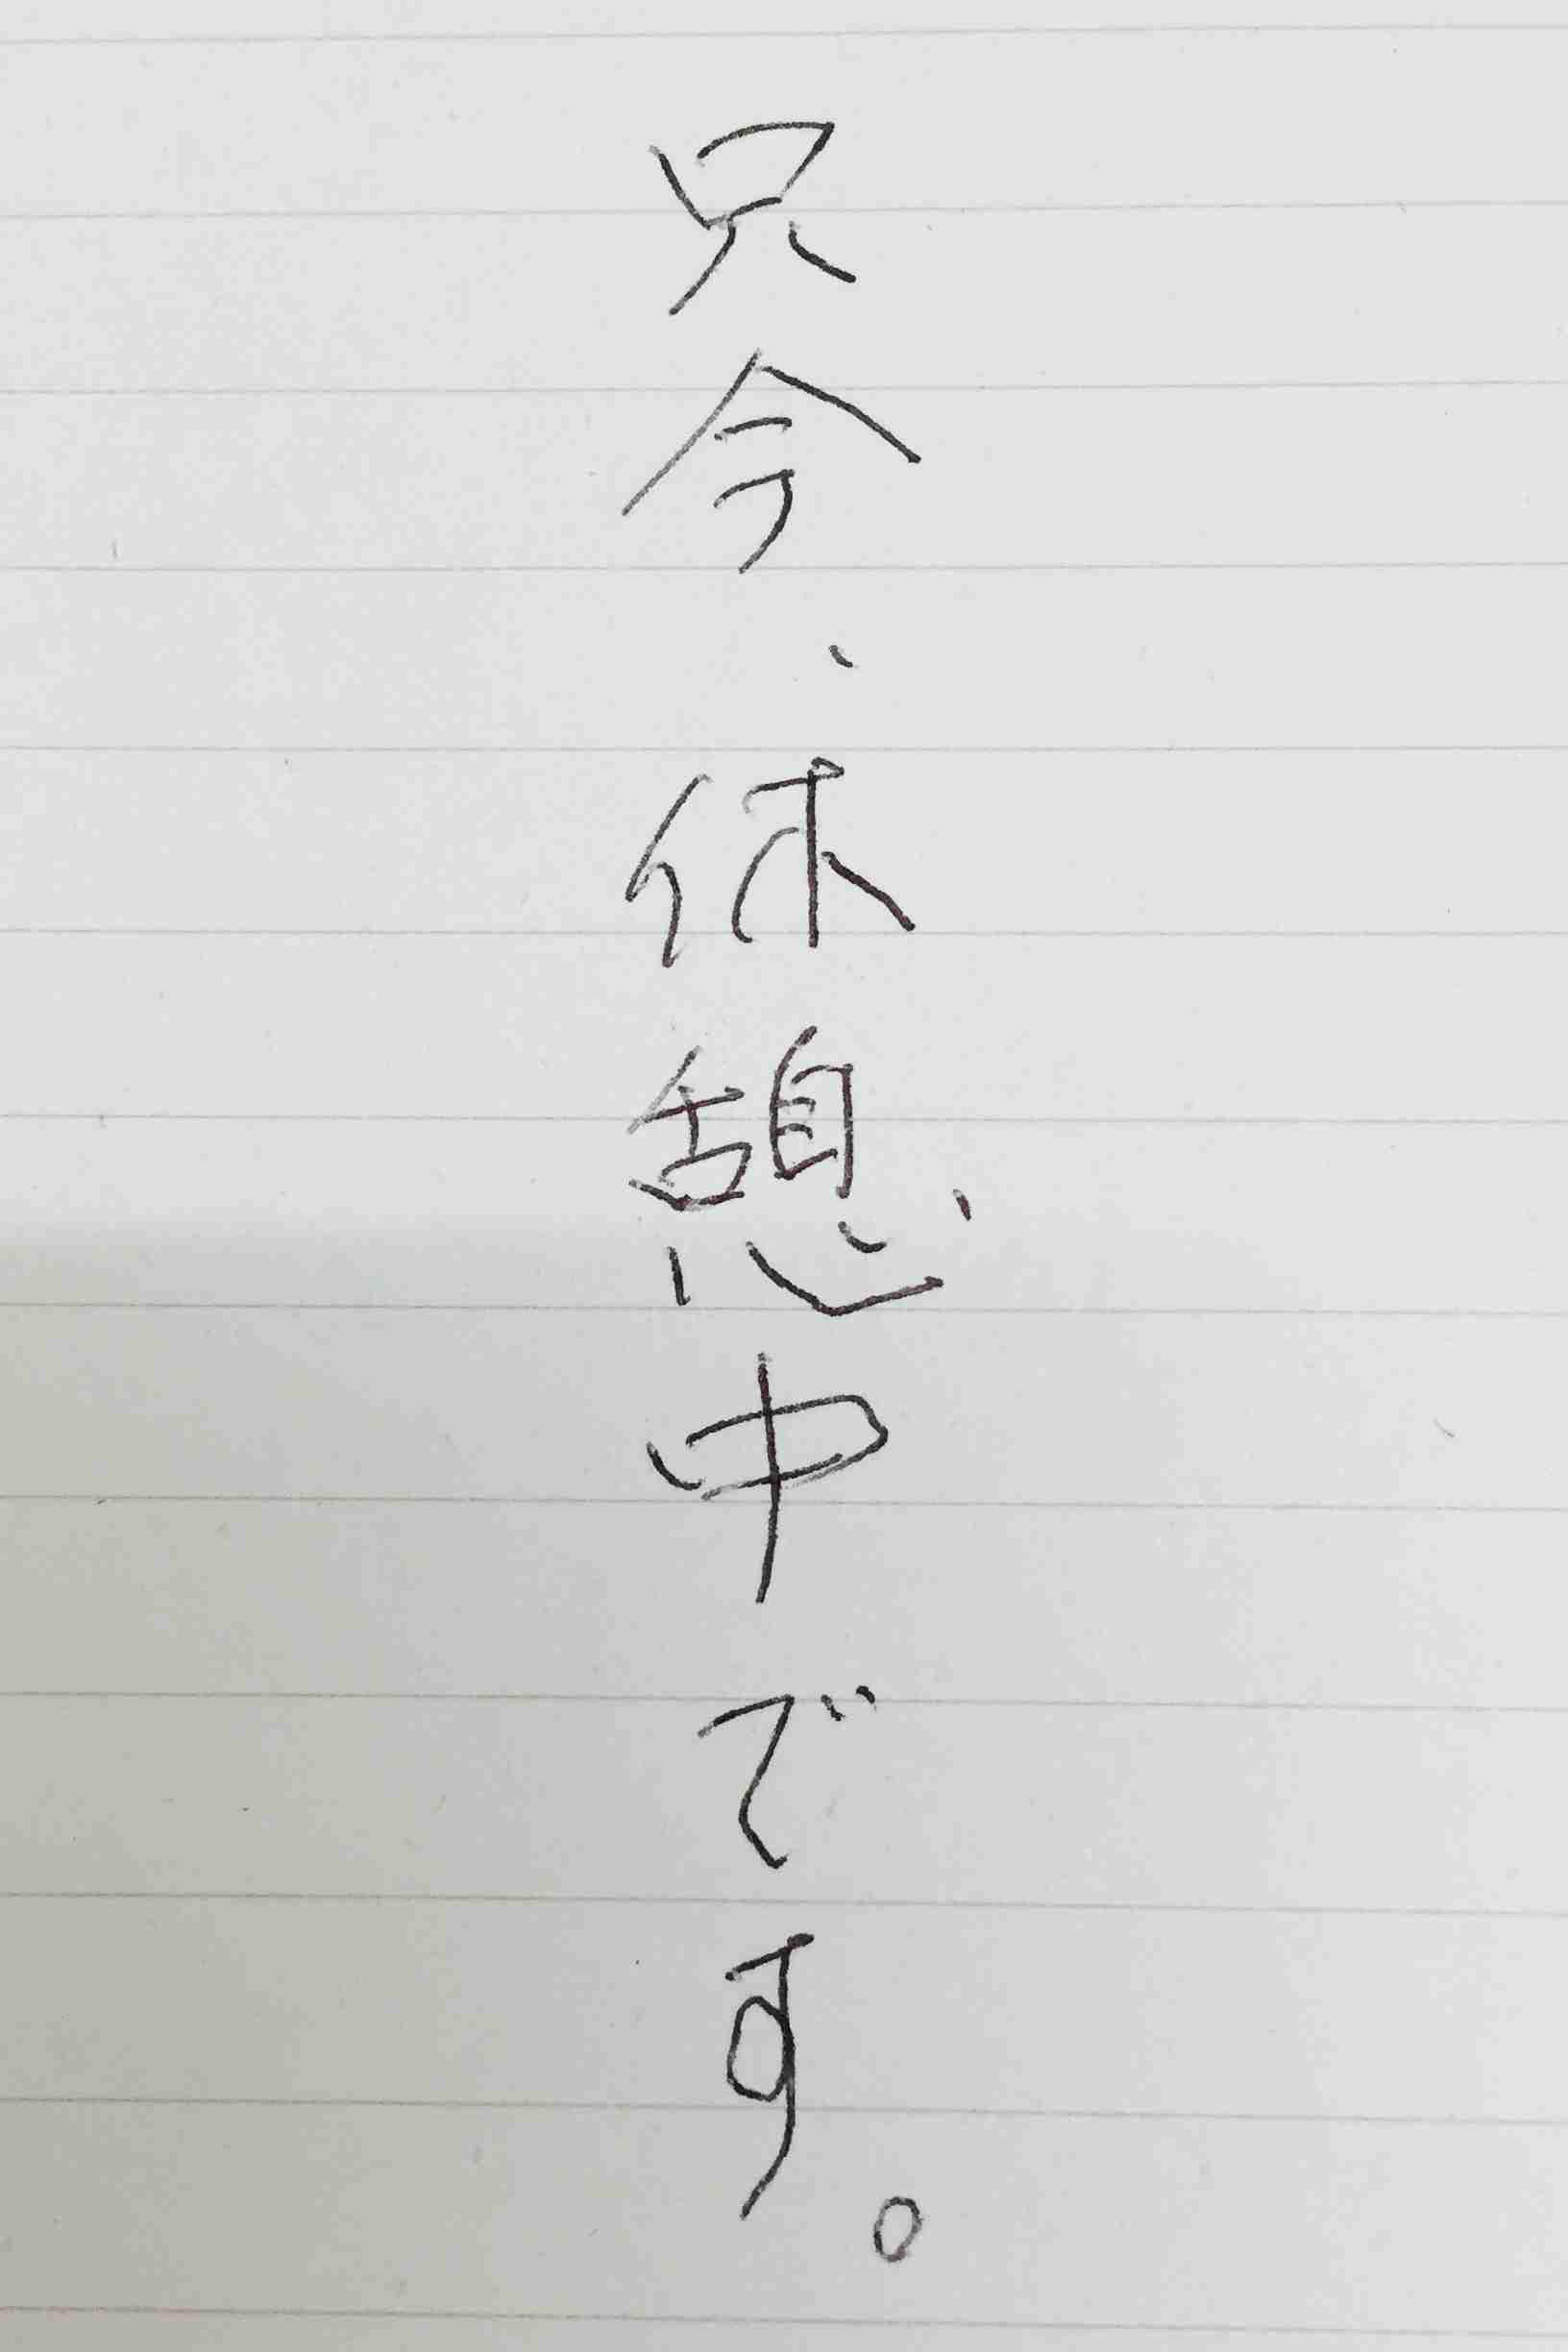 只今、休憩中です。